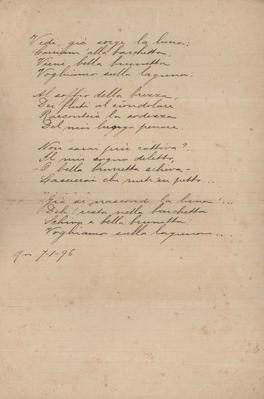 Vedi, già sorge la luna;
Corriam' alla barchetta,
Vieni, bella brunetta
Voghiamo sulla laguna.
Al soffio della brezza,
Dei flutti al ciondolare
Racconterò la
Del mio lungo penare.
Non sarai più cattiva?..
Al mio sogno diletto,
O bella brunetta schiva
Lascerai che
Già si nasconde la luna!...
Deh! resta nella barchetta
Schiva e bella brunetta,
Voghiamo sulla laguna...
7-1-96